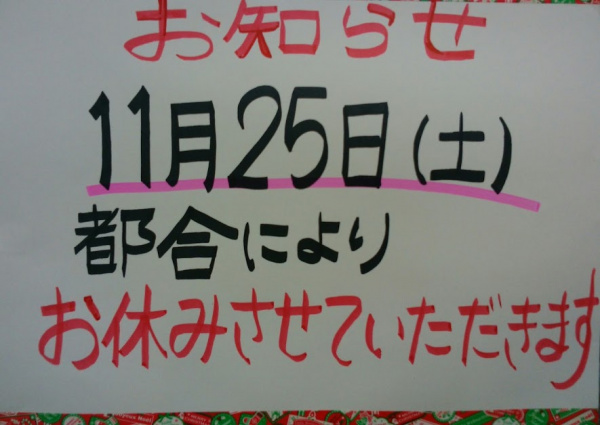 お知らせ
11月25日(土)
都合により
お休みさせていただきます